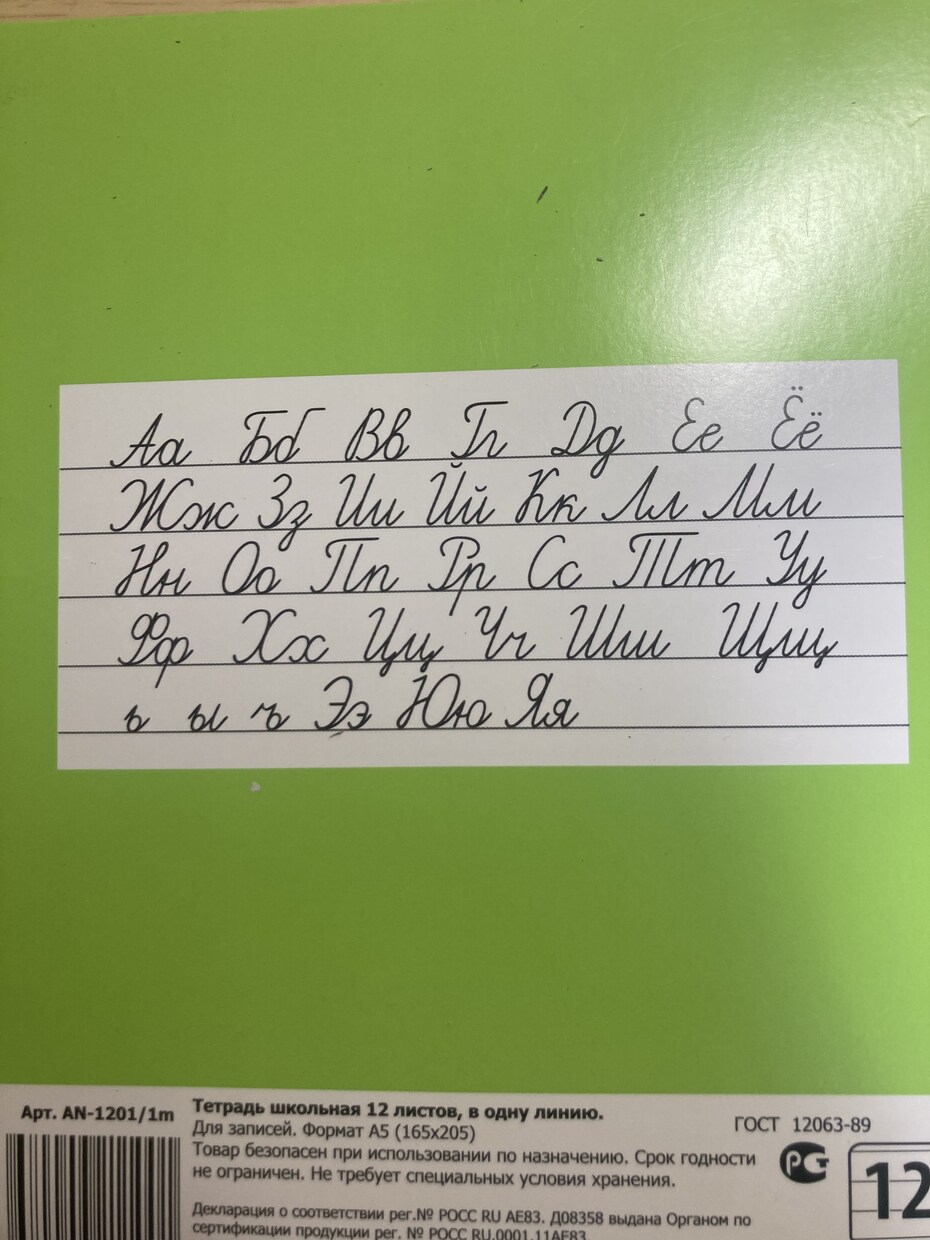 Аа Бб Вв Гг Дд Ее Ёё
Жж Зз Ии Йй Кк Лл Мм
Нн Оо Пп Рр Сс Тт Уу
Фф Хх Цц Чч Шш Щщ
ь ы ъ Ээ Юю Яя
Арт. AN-1201/1m
Тетрадь школьная 12 листов, в одну линию.
Для записей. Формат А5 (165х205)
Товар безопасен при использовании по назначению. Срок годности
не ограничен. Не требует специальных условия хранения.
Декларация о соответствии рег.№ РОСС RU АЕ83. Д08358 выдана Органом по
сертификации продукции рег. № РОСС RU.0001.11АЕ83.
ГОСТ 12063-89
РСТ
12